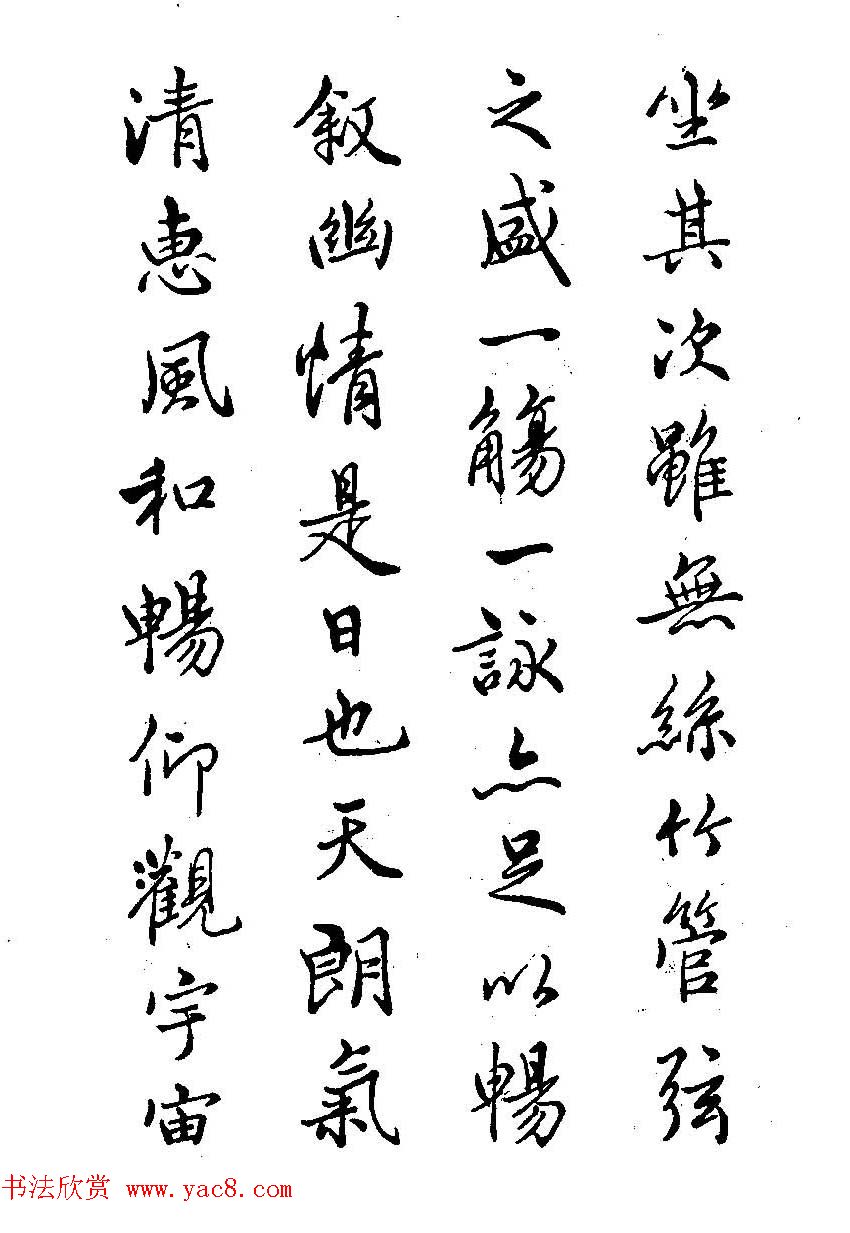 坐其次雖無絲竹管弦
之盛一觴一詠亦足以暢
敘幽情是日也天朗氣
清惠風和暢仰觀宇宙
书法欣赏 www.yac8.com